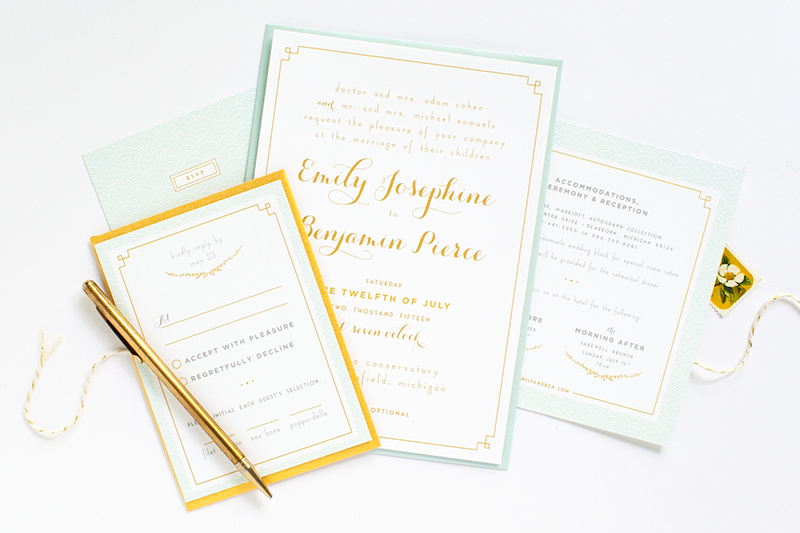 doctor and mrs. adam cohen
and mr. and mrs. michael samuels
request the pleasure of your company
at the marriage of their children
Emily Josephine
to
Benjamin Pierce
SATURDAY
THE TWELFTH OF JULY
TWO THOUSAND FIFTEEN
at seven o'clock
conservatory
field, michigan
OPTIONAL
RSVP
kindly reply by
may 23
M
ACCEPT WITH PLEASURE
REGRETFULLY DECLINE
INITIAL EACH GUEST'S SELECTION.
filet sea bass pappardelle
ACCOMMODATIONS,
CEREMONY & RECEPTION
MARRIOTT AUTOGRAPH COLLECTION
DRIVE - DEARBORN, MICHIGAN 48124
wedding block for special room rates
will be provided for the rehearsal dinner
us at the hotel for the following:
the
MORNING AFTER
FAREWELL BRUNCH
SUNDAY, JULY 13TH